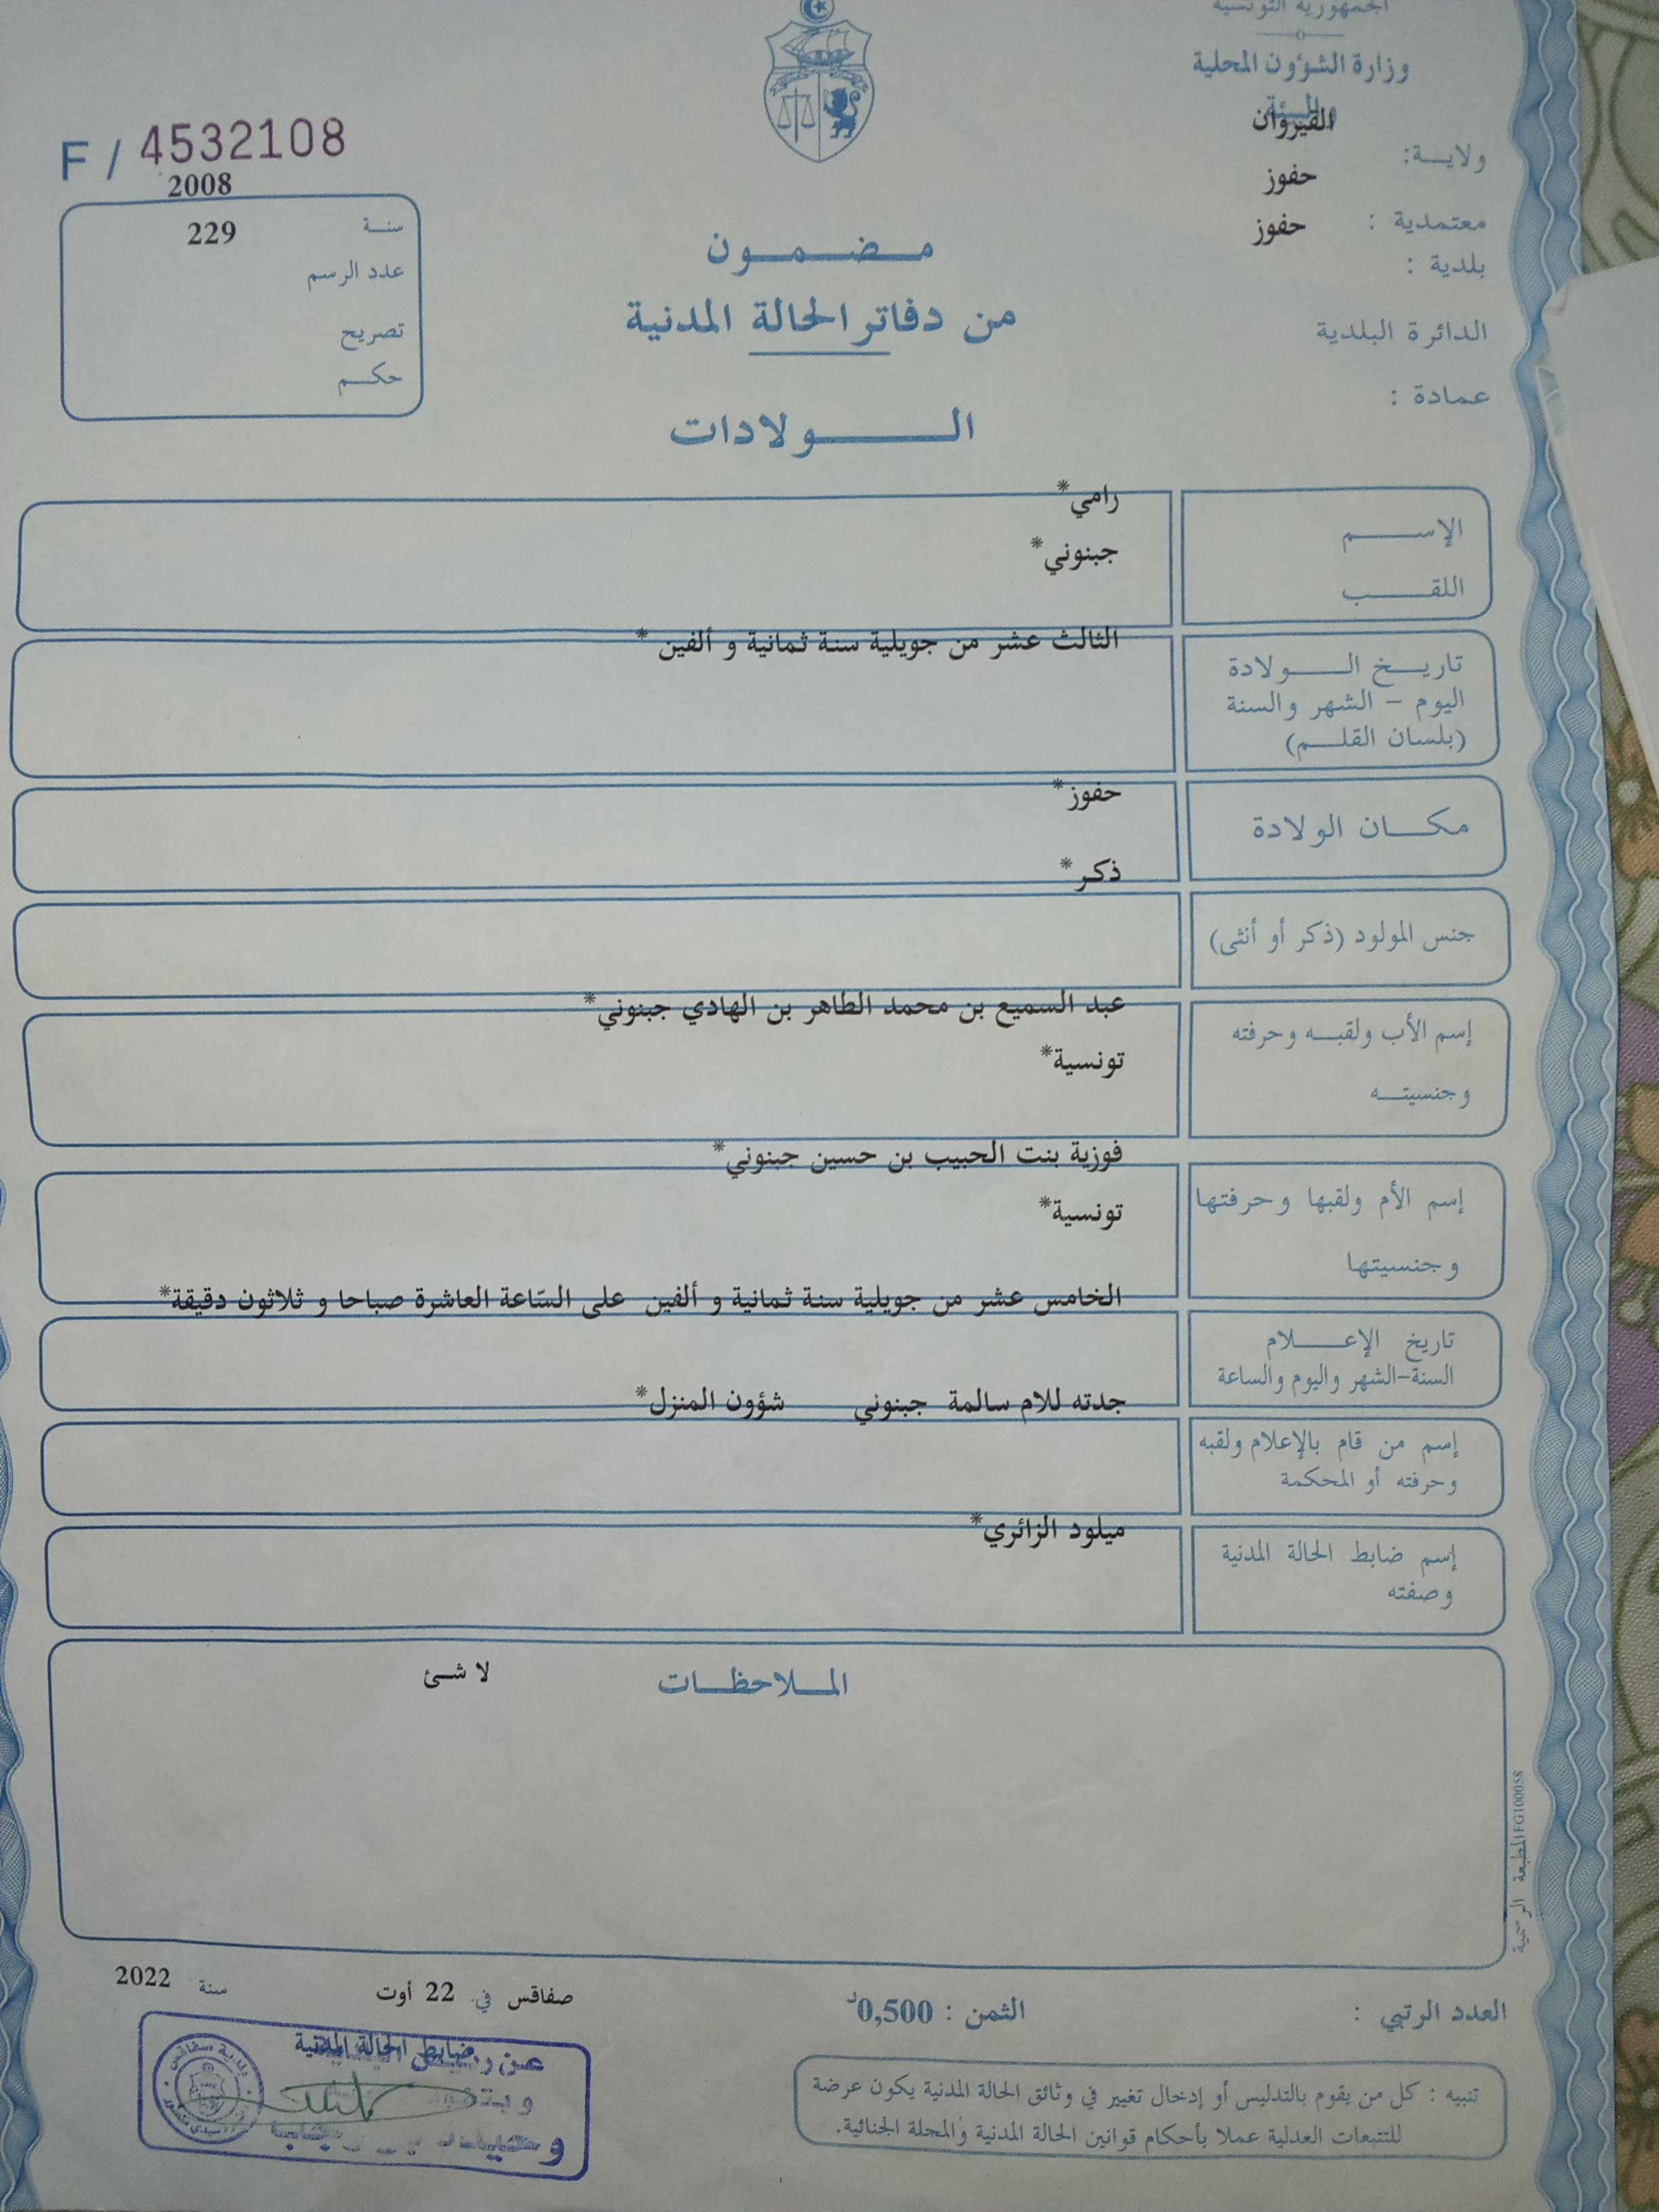 الجمهورية التونسية
وزارة الشؤون المحلية
والبيئة
ولايـة: القيروان
معتمدية : حفوز
بلدية : حفوز
الدائرة البلدية
عمادة :
F / 4532108
سنة 2008
عدد الرسم 229
تصريح
حكم
مضمون
من دفاتر الحالة المدنية
الولادات
الإسم رامي*
اللقب جبنوني*
تاريخ الولادة الثالث عشر من جويلية سنة ثمانية و ألفين *
اليوم - الشهر والسنة
(بلسان القلم)
مكان الولادة حفوز*
جنس المولود (ذكر أو أنثى) ذكر*
إسم الأب ولقبه وحرفته عبد السميع بن محمد الطاهر بن الهادي جبنوني*
وجنسيته تونسية*
إسم الأم ولقبها وحرفتها فوزية بنت الحبيب بن حسين جبنوني*
وجنسيتها تونسية*
تاريخ الإعلام الخامس عشر من جويلية سنة ثمانية و ألفين على السّاعة العاشرة صباحا و ثلاثون دقيقة*
السنة-الشهر واليوم والساعة
إسم من قام بالإعلام ولقبه جدته للام سالمة جبنوني شؤون المنزل*
وحرفته أو المحكمة
إسم ضابط الحالة المدنية ميلود الزائري*
وصفته
الملاحظات لا شئ
المطبعة الرسمية FG100058
العدد الرتبي :
الثمن : 0,500د
صفاقس في 22 أوت سنة 2022
ضابط الحالة المدنية
بلدية صفاقس
تنبيه : كل من يقوم بالتدليس أو إدخال تغيير في وثائق الحالة المدنية يكون عرضة
للتتبعات العدلية عملا بأحكام قوانين الحالة المدنية والمجلة الجنائية.